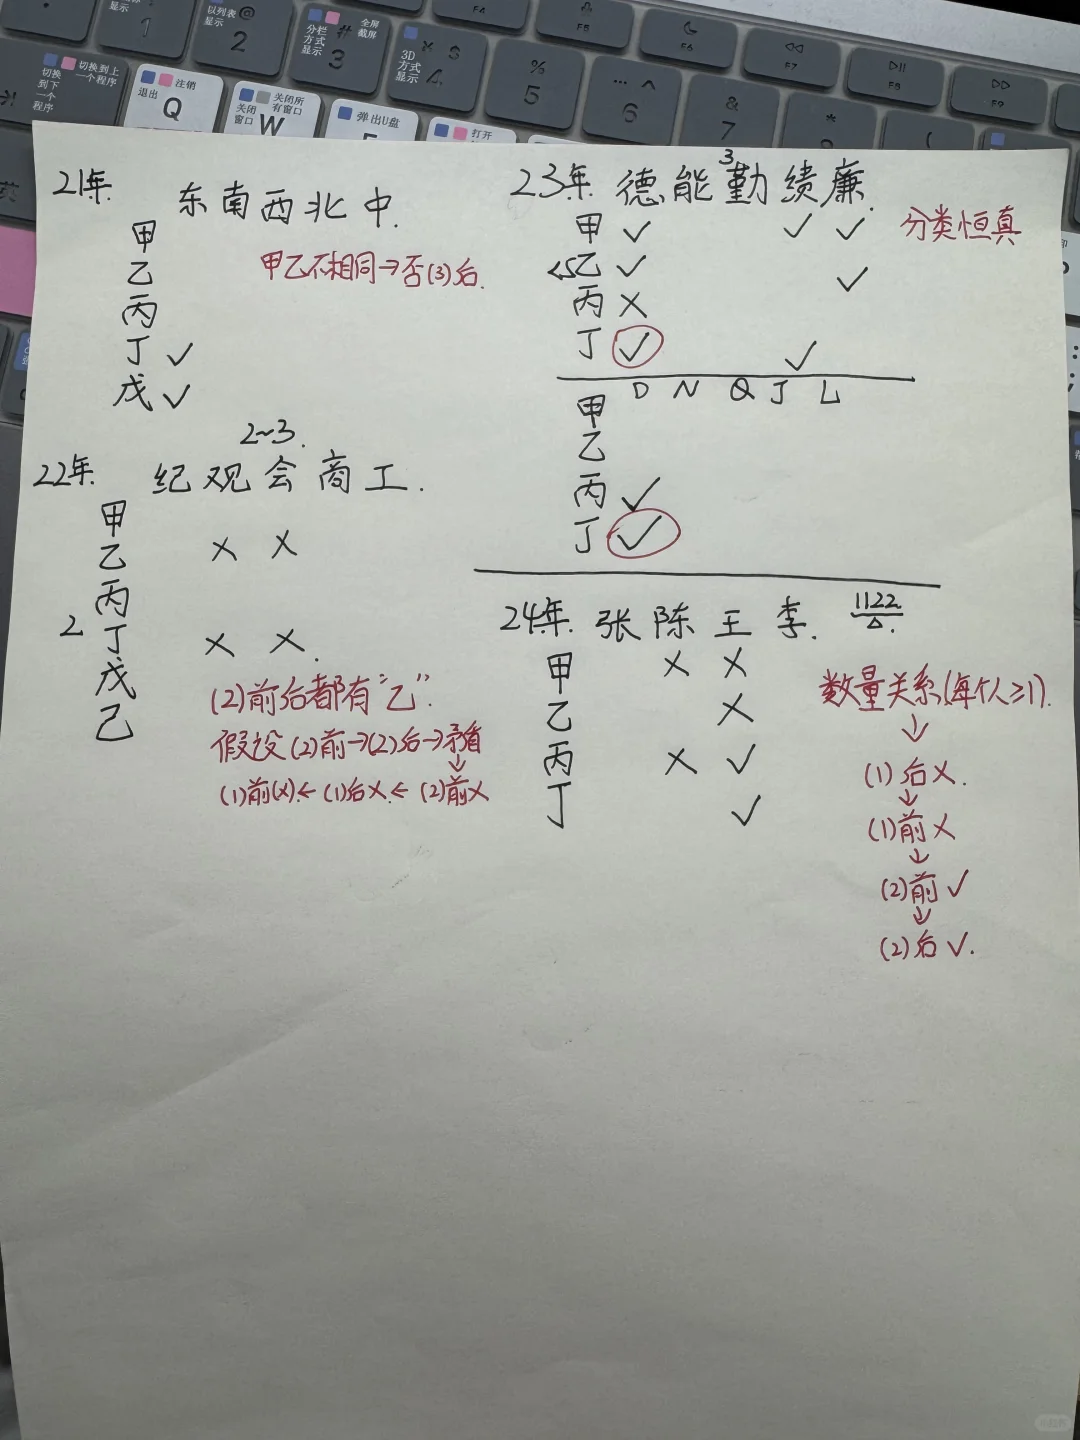 显示 1
以列表显示 @ 2
分栏方式显示 # 3 全屏截屏
3D方式显示 $ 4
% 5
… ^ 6
& 7
*
(
F4
F5
F6
F7
F8
F9
切换到下一个程序
切换到上一个程序
退出 注销 Q
关闭窗口 关闭所有窗口 W
弹出U盘
打开
21年. 东南西北中.
甲
乙 甲乙不相同→否(3)后.
丙
丁 ✓
戊 ✓
2~3.
22年. 纪观会商工.
甲
乙 × ×
丙
2 丁 × ×.
戊
己
(2)前后都有“乙”.
假设(2)前→(2)后→矛盾
↓
(1)前(×)←(1)后×←(2)前×
3
23年. 德能勤绩廉.
甲 ✓ ✓ ✓ 分类恒真
<5乙 ✓ ✓
丙 ×
丁 ✓ ✓
D N Q J L
甲
乙
丙 ✓
丁 ✓
24年. 张陈王李. 1122
△.
甲 × ×
乙 ×
丙 × ✓
丁 ✓
数量关系(每个人≥1).
↓
(1)后×.
↓
(1)前×
↓
(2)前✓
↓
(2)后✓.
小红书